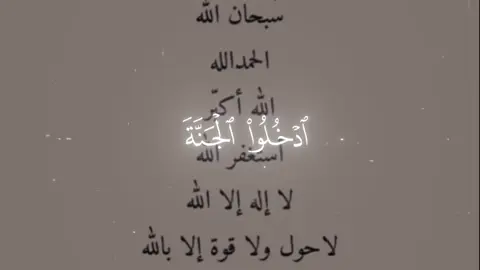 سبحان الله
الحمدالله
الله أكبّر
ٱدْخُلُوا۟ ٱلْجَنَّةَ
استغفر الله
لا إله إلا الله
لاحول ولا قوة إلا بالله